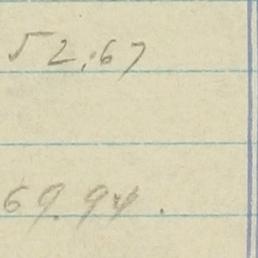 52.67
69.94.